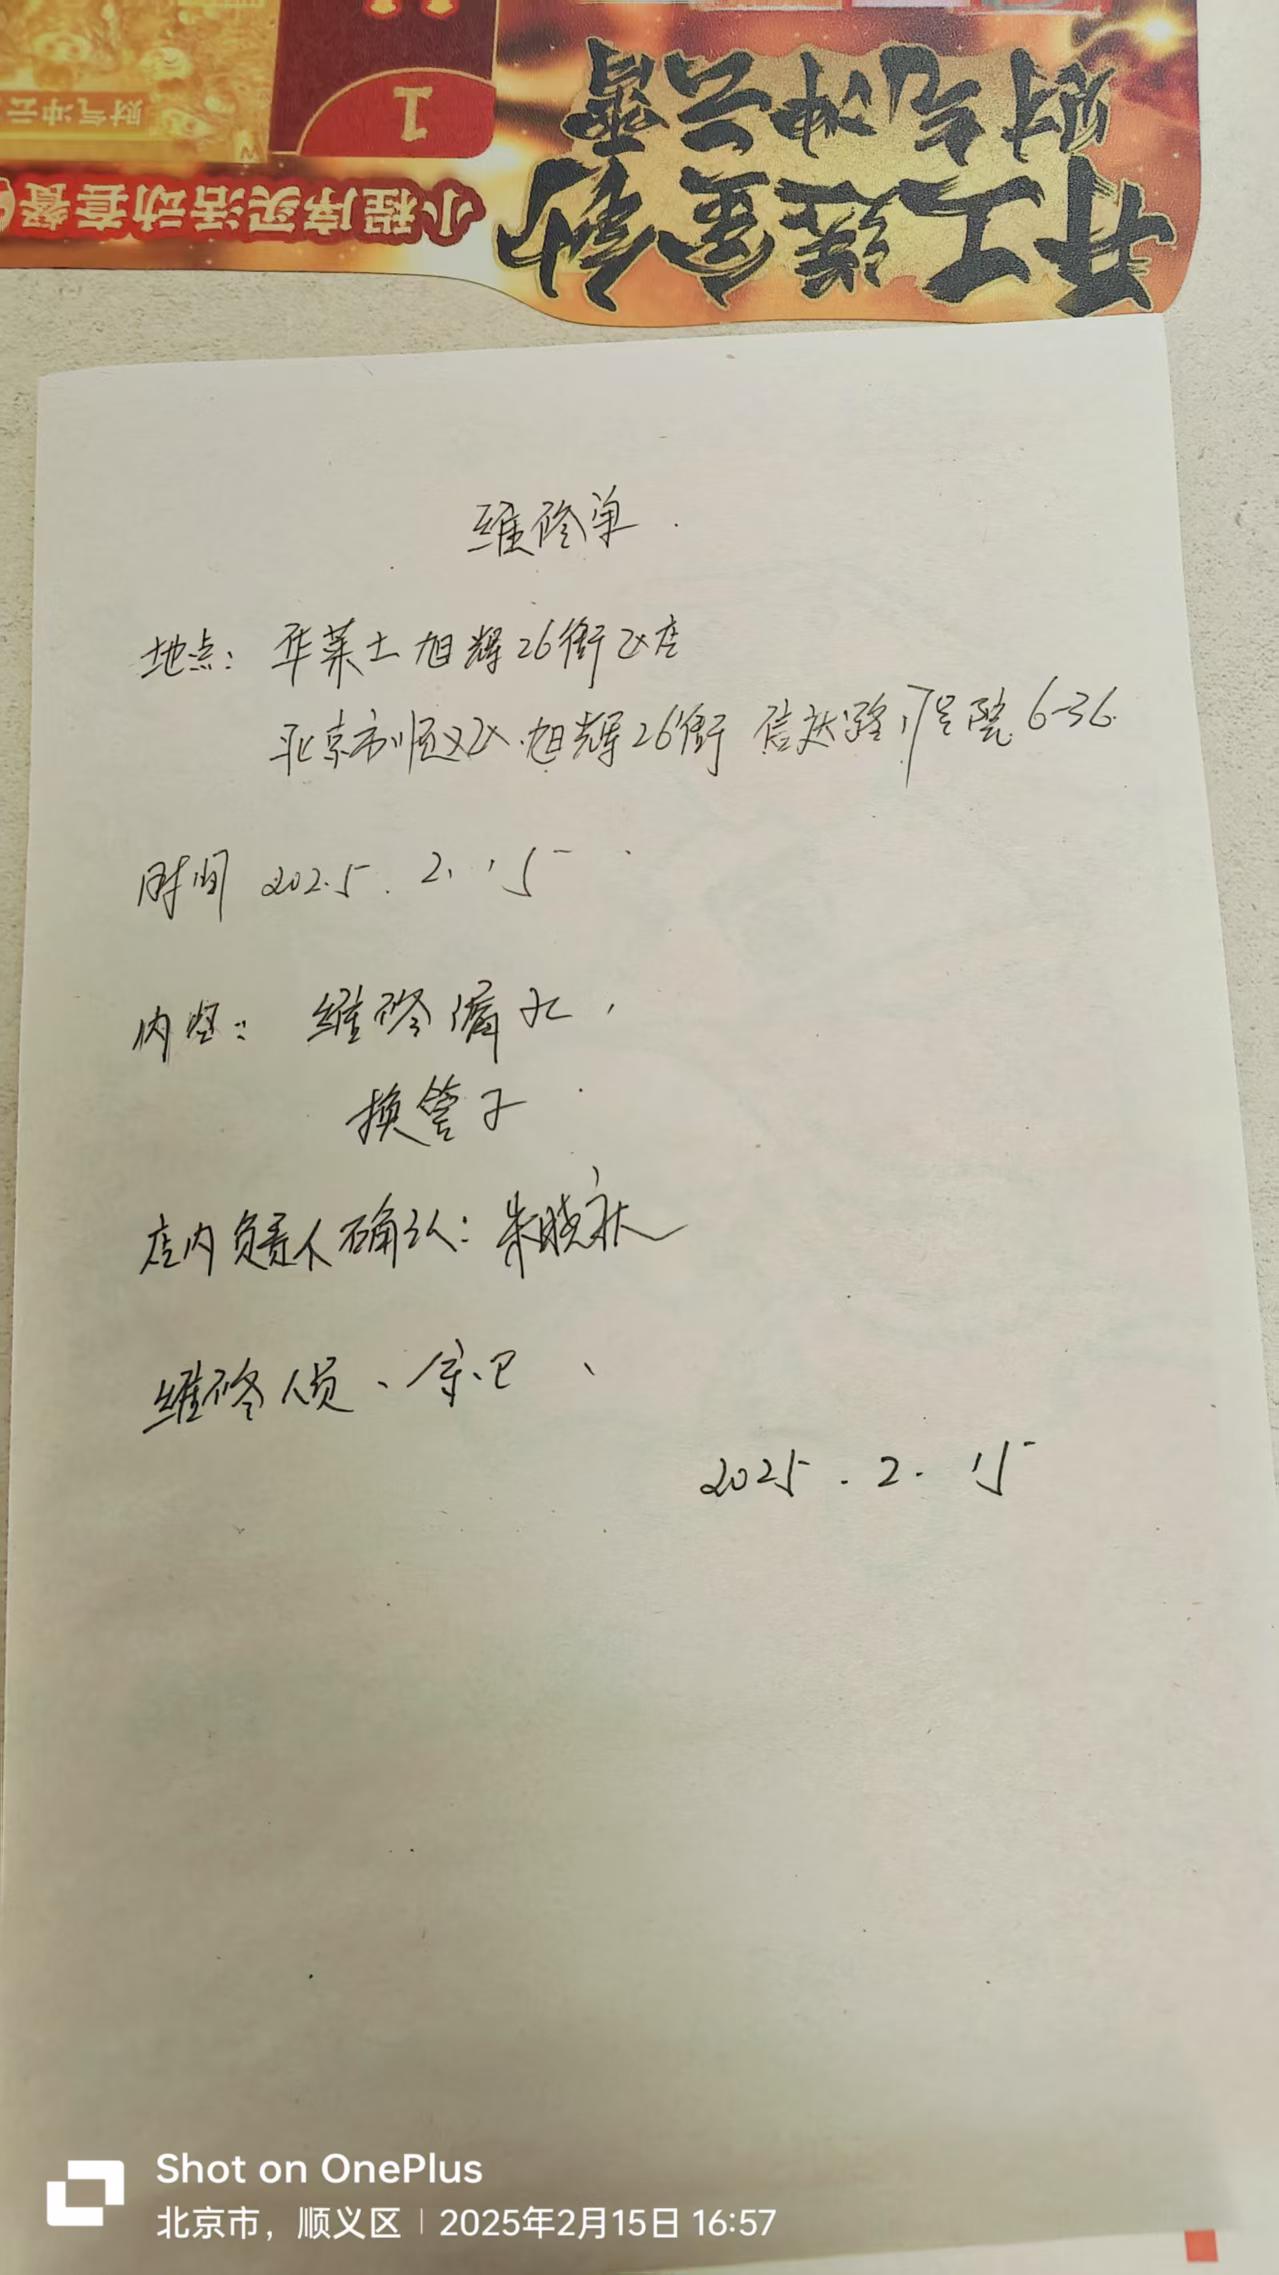 财气冲云霄
开工送金钞
1
财气冲云
小程序买活动套餐
维修单
地点：华莱士旭辉26街区店
北京市顺义区旭辉26街 信 路 号院6-36
时间 2025.2.15
内容：维修漏水，
换管子
店内负责人确认：朱晓秋
维修人员、
2025.2.15
Shot on OnePlus
北京市，顺义区 | 2025年2月15日 16:57